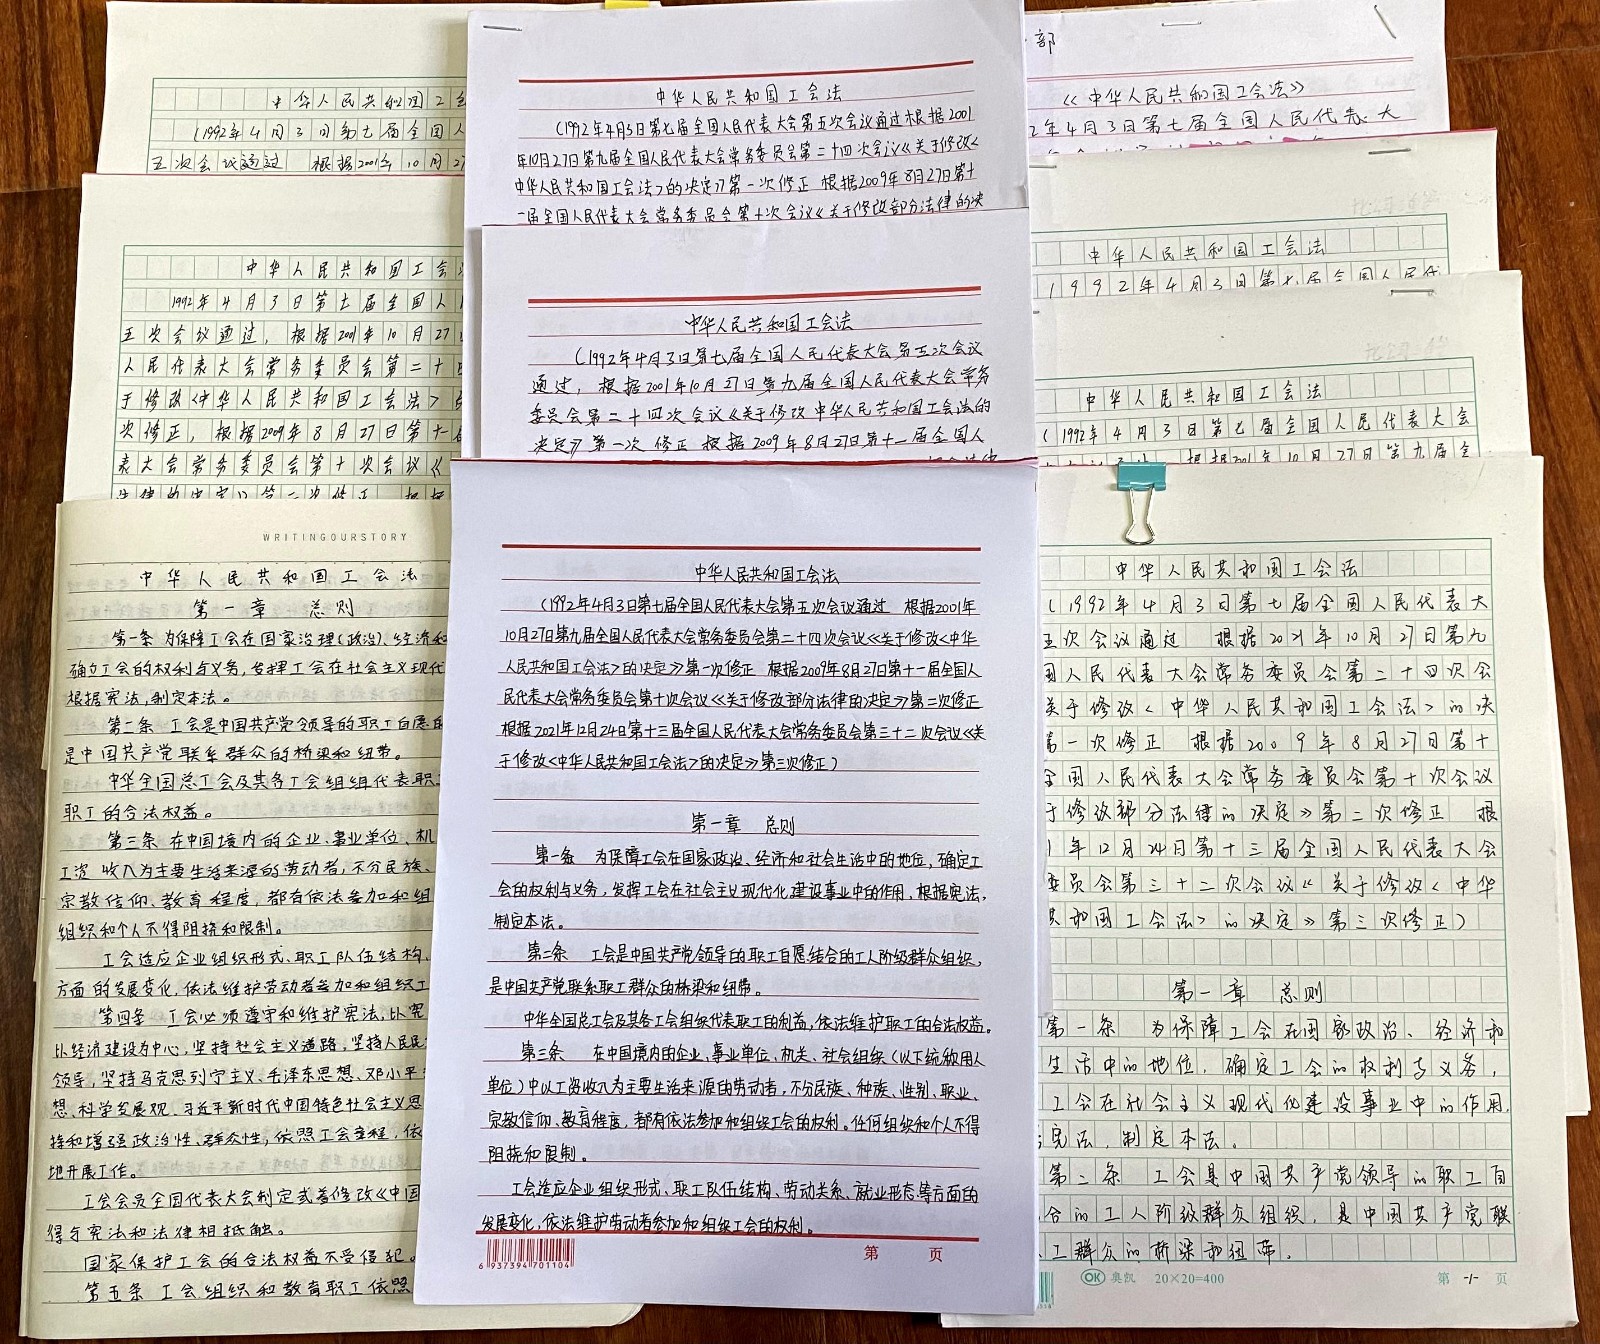 中华人民共和国工会
(1992年4月3日第七届全国人
五次会议通过 根据2001年10月27
中华人民共和国工会
1992年4月3日第七届全国人
五次会议通过,根据2001年10月27
人民代表大会常务委员会第二十
于修改<中华人民共和国工会法>
次修正,根据2009年8月27日第十一
表大会常务委员会第十次会议《
WRITINGOURSTORY
中华人民共和国工会法
第一章 总则
第一条 为保障工会在国家治理(政治)、经济和
确立工会的权利与义务,发挥工会在社会主义现代
根据宪法,制定本法。
第二条 工会是中国共产党领导的职工自愿
是中国共产党联系群众的桥梁和纽带。
中华全国总工会及其各工会组组代表职
职工的合法权益。
第三条 在中国境内的企业、事业单位、机
工资 收入为主要生活来源的劳动者,不分民族、
宗教信仰、教育程度,都有依法参加和组
组织和个人不得阻挠和限制。
工会适应企业组织形式、职工队伍结构、
方面的发展变化,依法维护劳动者参加和组织工
第四条 工会必须遵守和维护宪法,以宪
以经济建设为中心,坚持社会主义道路,坚持人民民
领导,坚持马克思列宁主义、毛泽东思想、邓小平
想、科学发展观、习近平新时代中国特色社会主义思
持和增强政治性、群众性,依照工会章程,依
地开展工作。
工会会员全国代表大会制定或者修改《中国
得与宪法和法律相抵触。
国家保护工会的合法权益不受侵犯。
第五条 工会组织和教育职工依照
中华人民共和国工会法
(1992年4月3日第七届全国人民代表大会第五次会议通过 根据2001
年10月27日第九届全国人民代表大会常务委员会第二十四次会议《关于修改<
中华人民共和国工会法>的决定》第一次修正 根据2009年8月27日第十
一届全国人民代表大会常务委员会第十次会议《关于修改部分法律的决
中华人民共和国工会法
(1992年4月3日第七届全国人民代表大会第五次会议
通过,根据2001年10月27日第九届全国人民代表大会常务
委员会第二十四次会议《关于修改中华人民共和国工会法的
决定》第一次修正 根据2009年8月27日第十一届全国人
中华人民共和国工会法
(1992年4月3日第七届全国人民代表大会第五次会议通过 根据2001年
10月27日第九届全国人民代表大会常务委员会第二十四次会议《关于修改<中华
人民共和国工会法>的决定》第一次修正 根据2009年8月27日第十一届全国人
民代表大会常务委员会第十次会议《关于修改部分法律的决定》第二次修正
根据2021年12月24日第十三届全国人民代表大会常务委员会第三十二次会议《关
于修改<中华人民共和国工会法>的决定》第三次修正)
第一章 总则
第一条 为保障工会在国家政治、经济和社会生活中的地位,确定工
会的权利与义务,发挥工会在社会主义现代化建设事业中的作用,根据宪法,
制定本法。
第二条 工会是中国共产党领导的职工自愿结合的工人阶级群众组织,
是中国共产党联系职工群众的桥梁和纽带。
中华全国总工会及其各工会组织代表职工的利益,依法维护职工的合法权益。
第三条 在中国境内的企业、事业单位、机关、社会组织(以下统称用人
单位)中以工资收入为主要生活来源的劳动者,不分民族、种族、性别、职业、
宗教信仰、教育程度,都有依法参加和组织工会的权利。任何组织和个人不得
阻挠和限制。
工会适应企业组织形式、职工队伍结构、劳动关系、就业形态等方面的
发展变化,依法维护劳动者参加和组织工会的权利。
6 937394 701104
第 页
部
《中华人民共和国工会法》
2年4月3日第七届全国人民代表大
中华人民共和国工会法
1992年4月3日第七届全国人民代
中华人民共和国工会法
(1992年4月3日第七届全国人民代表大会
根据2001年10月27日第九届全
中华人民共和国工会法
(1992年4月3日第七届全国人民代表大
五次会议通过 根据2021年10月27日第九
国人民代表大会常务委员会第二十四次会
关于修改<中华人民共和国工会法>的决
第一次修正 根据2009年8月27日第十
全国人民代表大会常务委员会第十次会议
于修改部分法律的决定》第二次修正 根
1年12月24日第十三届全国人民代表大会
委员会第三十二次会议《关于修改<中华
共和国工会法>的决定》第三次修正)
第一章 总则
第一条 为保障工会在国家政治、经济和
生活中的地位,确定工会的权利与义务,
工会在社会主义现代化建设事业中的作用,
宪法,制定本法。
第二条 工会是中国共产党领导的职工自
合的工人阶级群众组织,是中国共产党联
工群众的桥梁和纽带。
OK 奥凯 20×20=400
第 -1- 页